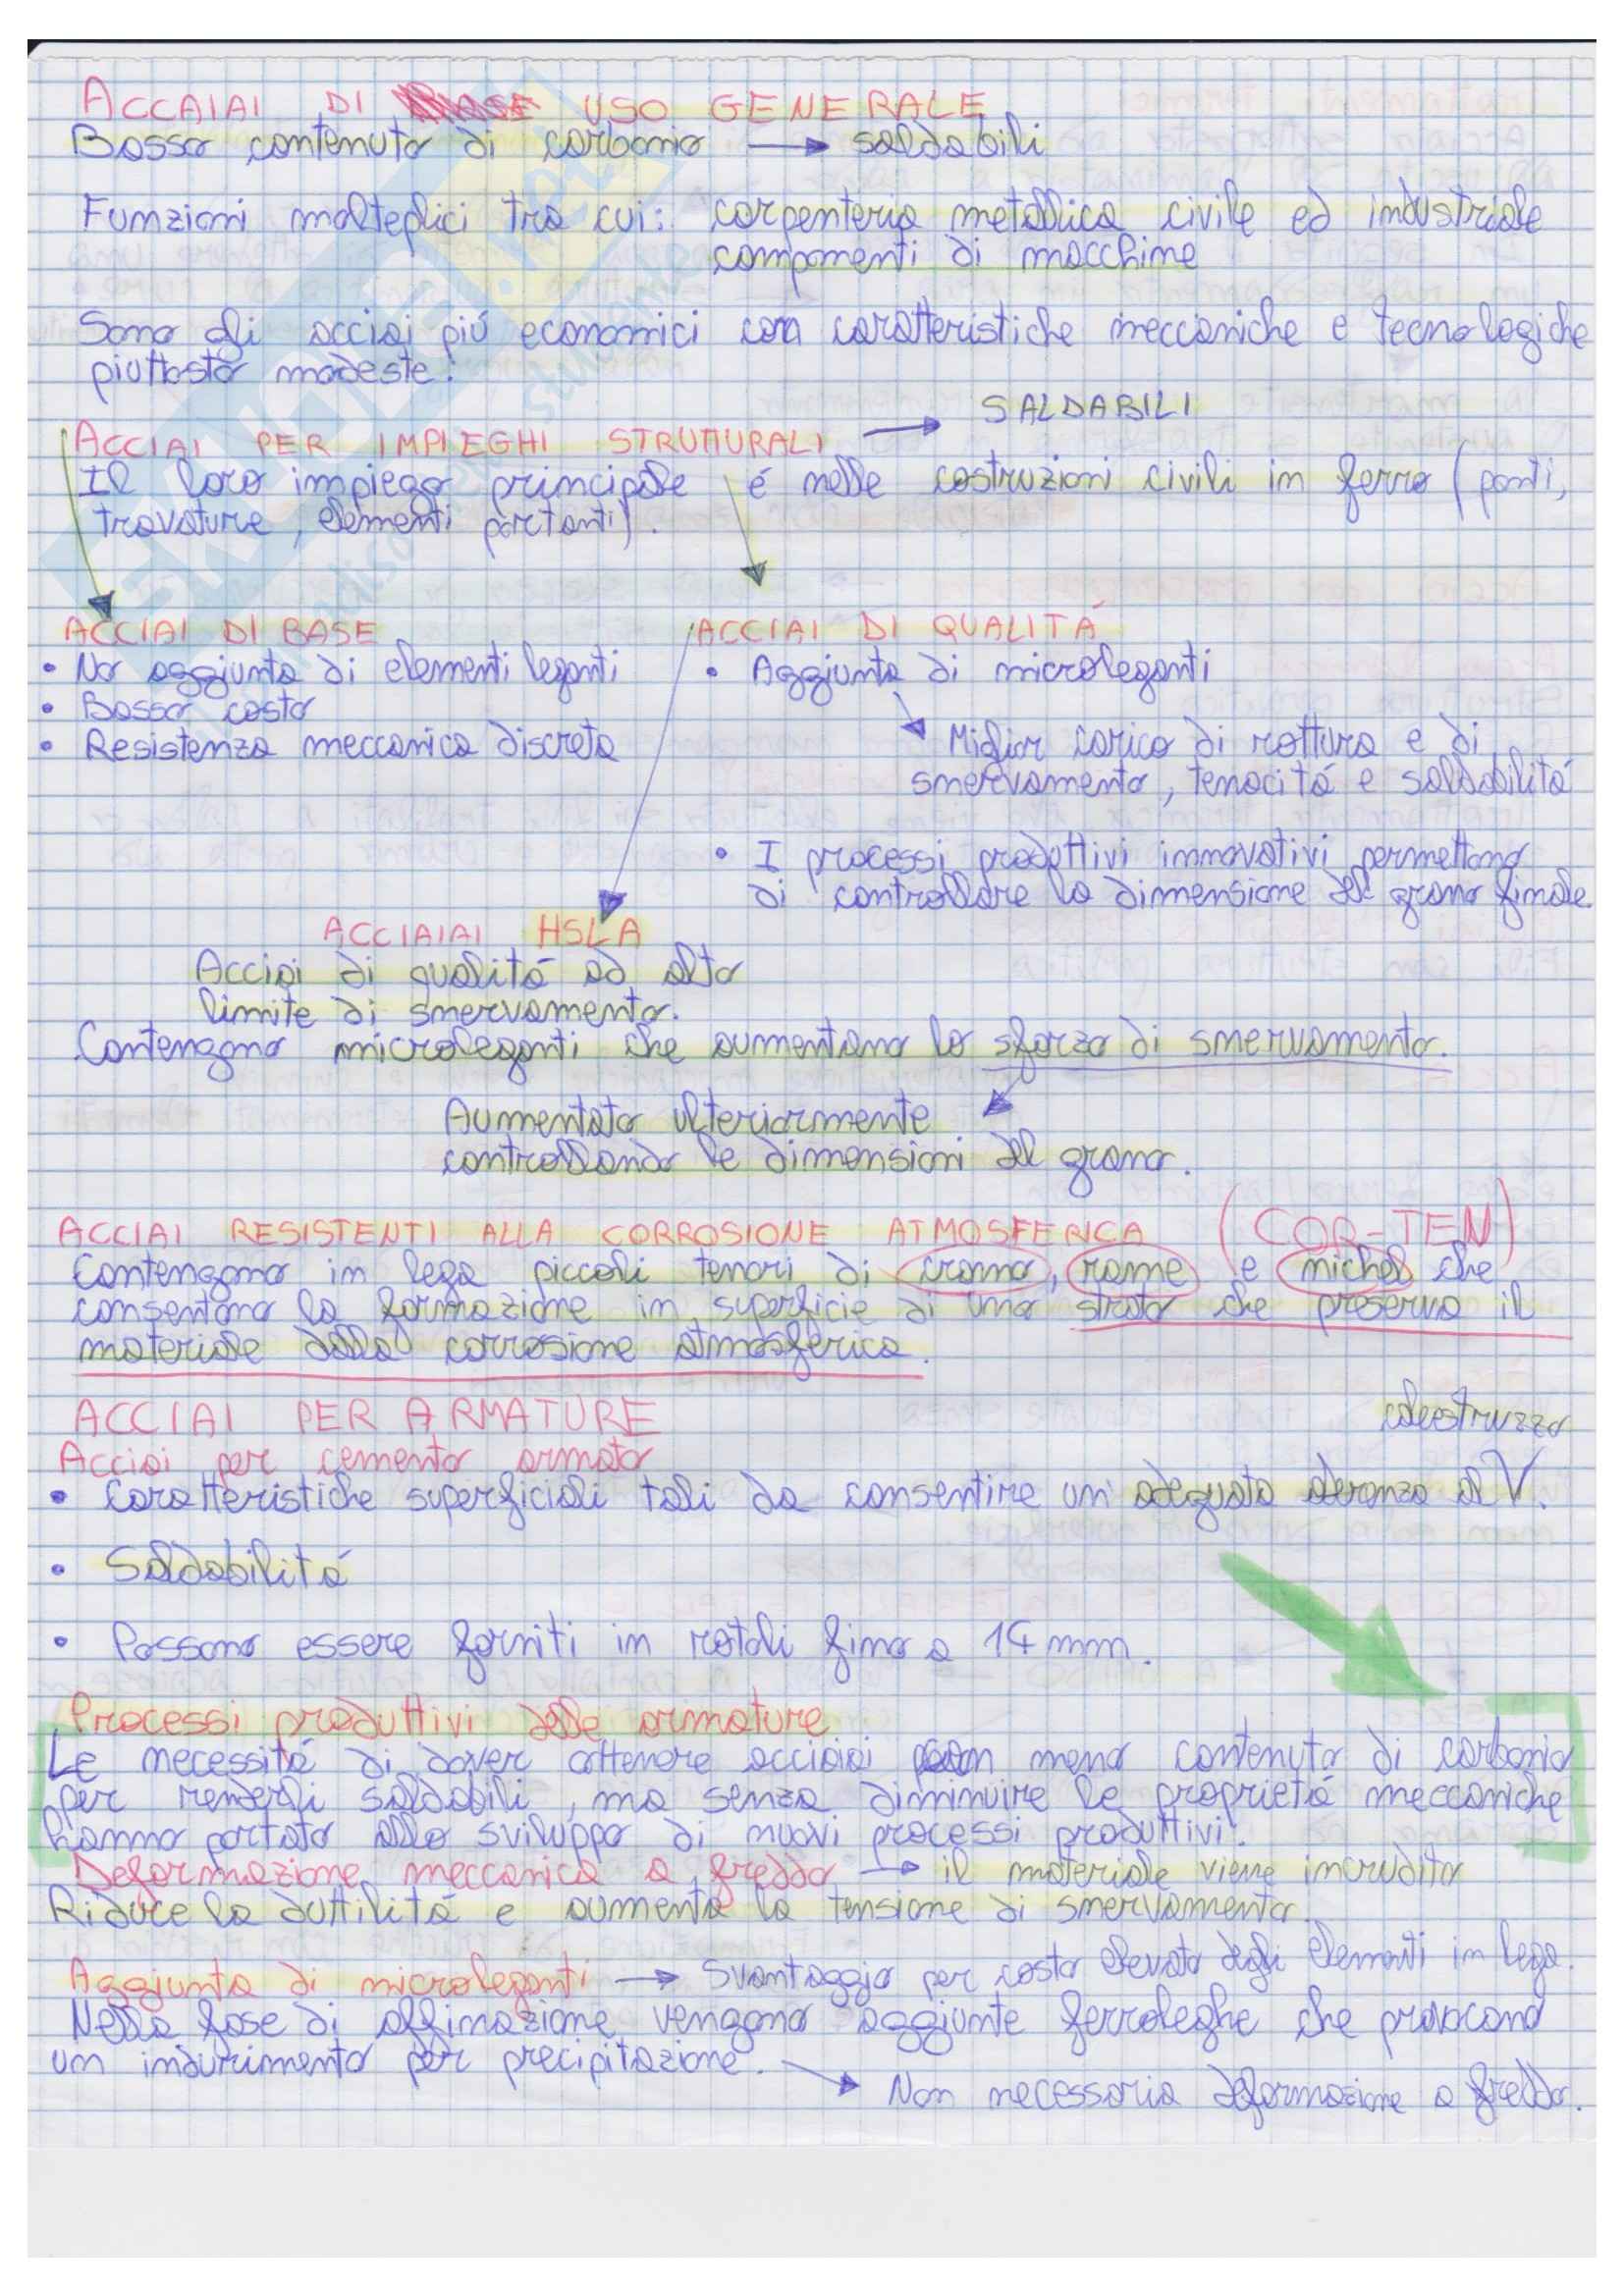 ACCAIAI DI USO GENERALE
Basso contenuto di carbonio → saldabili
Funzioni molteplici tra cui: carpenteria metallica civile ed industriale
componenti di macchine
Sono gli acciai piú economici con caratteristiche meccaniche e tecnologiche
piuttosto modeste.
→ SALDABILI
ACCIAI PER IMPIEGHI STRUTTURALI
Il loro impiego principale é nelle costruzioni civili in ferro (ponti,
travature, elementi portanti).
ACCIAI DI BASE
• No aggiunta di elementi leganti
• Basso costo
• Resistenza meccanica discreta
ACCIAI DI QUALITÁ
• Aggiunta di microleganti
Miglior carico di rottura e di
snervamento, tenacitá e saldabilitá
• I processi produttivi innovativi permettono
di controllare la dimensione del grano finale.
ACCIAIAI HSLA
Acciai di qualitá ad alto
limite di snervamento.
Contengono microleganti che aumentano lo sforzo di snervamento.
Aumentato ulteriormente
controllando le dimensioni del grano.
ACCIAI RESISTENTI ALLA CORROSIONE ATMOSFERICA (COR-TEN)
Contengono in lega piccoli tenori di cromo, rame e nichel che
consentono la formazione in superficie di uno strato che preserva il
materiale dalla corrosione atmosferica.
ACCIAI PER ARMATURE
Acciai per cemento armato
calcestruzzo
• Caratteristiche superficiali tali da consentire un adeguata aderanza al V.
• Saldabilitá
• Possono essere forniti in rotoli fino a 14 mm.
Processi produttivi delle armature
Le necessitá di dover ottenere acciai con meno contenuto di carbonio
per renderli saldabili, ma senza diminuire le proprietá meccaniche
hanno portato allo sviluppo di nuovi processi produttivi.
Deformazione meccanica a freddo → il materiale viene incrudito
Riduce la duttilitá e aumenta la tensione di snervamento.
Aggiunta di microleganti → Svantaggio per costo elevato degli elementi in lega.
Nella fase di affinazione vengono aggiunte ferroleghe che provocano
un indurimento per precipitazione.
Non necessaria deformazione a freddo.